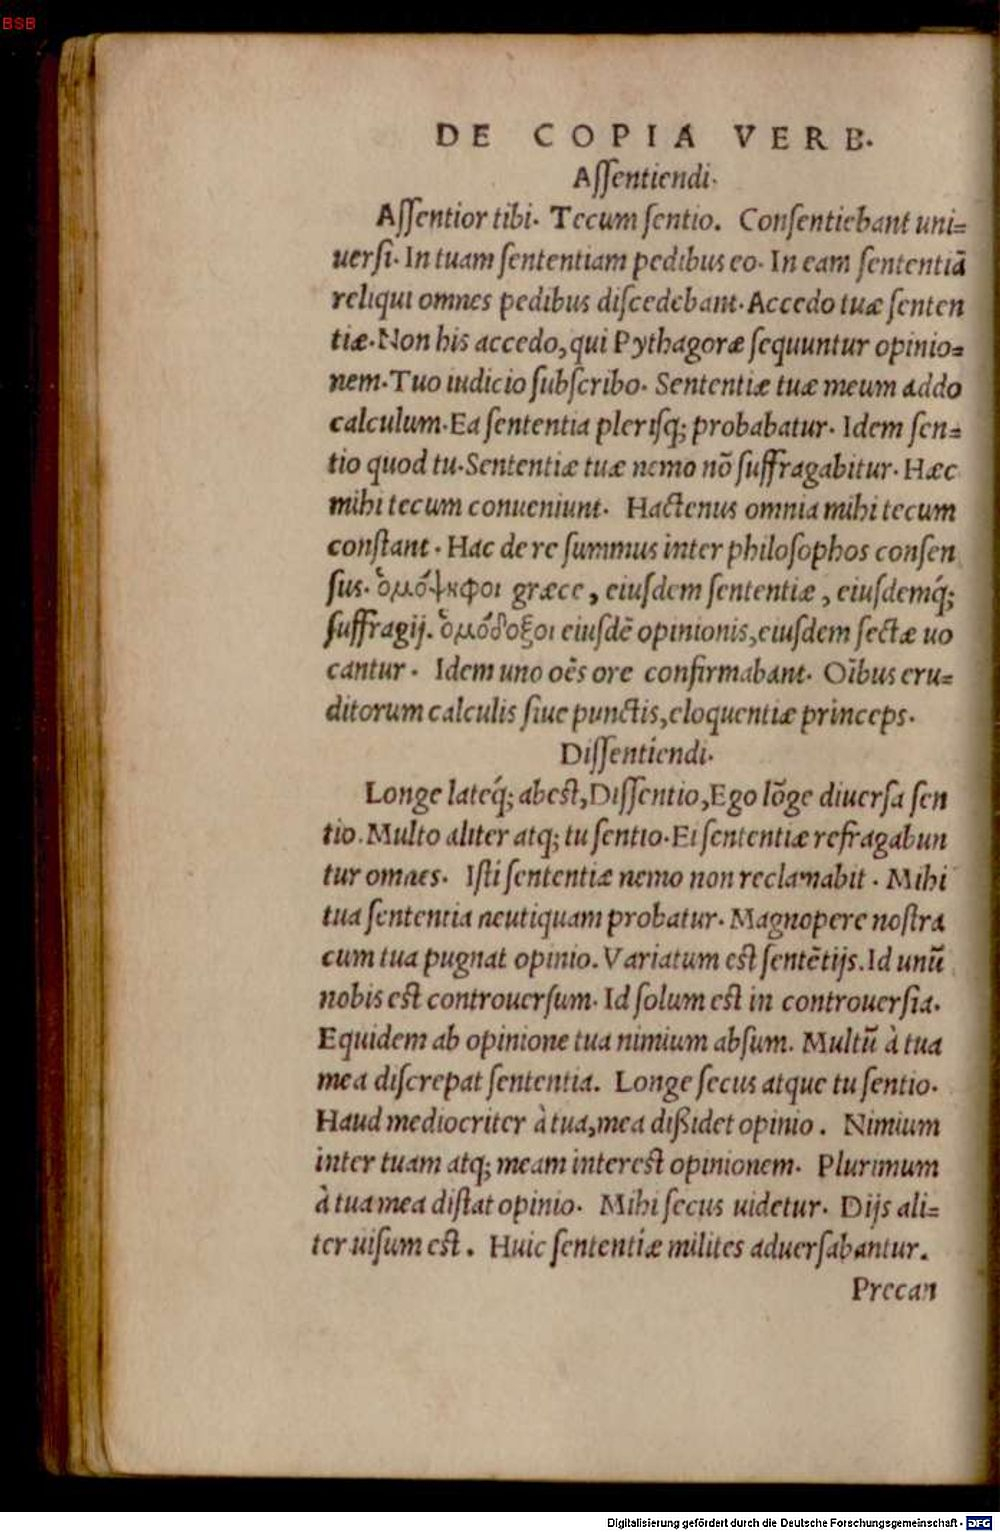 BSB
DE COPIA VERB.
Aſſentiendi.
Aſſentior tibi. Tecum ſentio. Conſentiebant uni=
uerſi. In tuam ſententiam pedibus eo. In eam ſententiā
reliqui omnes pedibus diſcedebant. Accedo tuæ ſenten
tiæ. Non his accedo, qui Pythagoræ ſequuntur opinio=
nem. Tuo iudicio ſubſcribo. Sententiæ tuæ meum addo
calculum. Ea ſententia pleriſq; probabatur. Idem ſen=
tio quod tu. Sententiæ tuæ nemo nō ſuffragabitur. Hæc
mihi tecum conueniunt. Hactenus omnia mihi tecum
conſtant. Hac de re ſummus inter philoſophos conſen
ſus. ὁμόψηφοι græce, eiuſdem ſententiæ, eiuſdemq́;
ſuffragij. ὁμόδοξοι eiuſdē opinionis, eiuſdem ſectæ uo
cantur. Idem uno oēs ore confirmabant. Oībus eru=
ditorum calculis ſiue punctis, eloquentiæ princeps.
Diſſentiendi.
Longe lateq́; abeſt, Diſſentio, Ego lōge diuerſa ſen
tio. Multo aliter atq; tu ſentio. Ei ſententiæ refragabun
tur omnes. Iſti ſententiæ nemo non reclamabit. Mihi
tua ſententia neutiquam probatur. Magnopere noſtra
cum tua pugnat opinio. Variatum eſt ſentētijs. Id unū
nobis eſt controuerſum. Id ſolum eſt in controuerſia.
Equidem ab opinione tua nimium abſum. Multū à tua
mea diſcrepat ſententia. Longe ſecus atque tu ſentio.
Haud mediocriter à tua, mea dißidet opinio. Nimium
inter tuam atq; meam intereſt opinionem. Plurimum
à tua mea diſtat opinio. Mihi ſecus uidetur. Dijs ali=
ter uiſum eſt. Huic ſententiæ milites aduerſabantur.
Precan
Digitalisierung gefördert durch die Deutsche Forschungsgemeinschaft - DFG